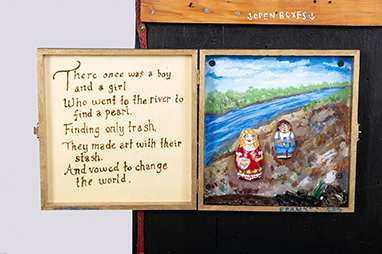 ↓OPEN BOXES↓
There once was a boy
and a girl
Who went to the river to
find a pearl.
Finding only trash,
They made art with their
stash.
And vowed to change
the world.